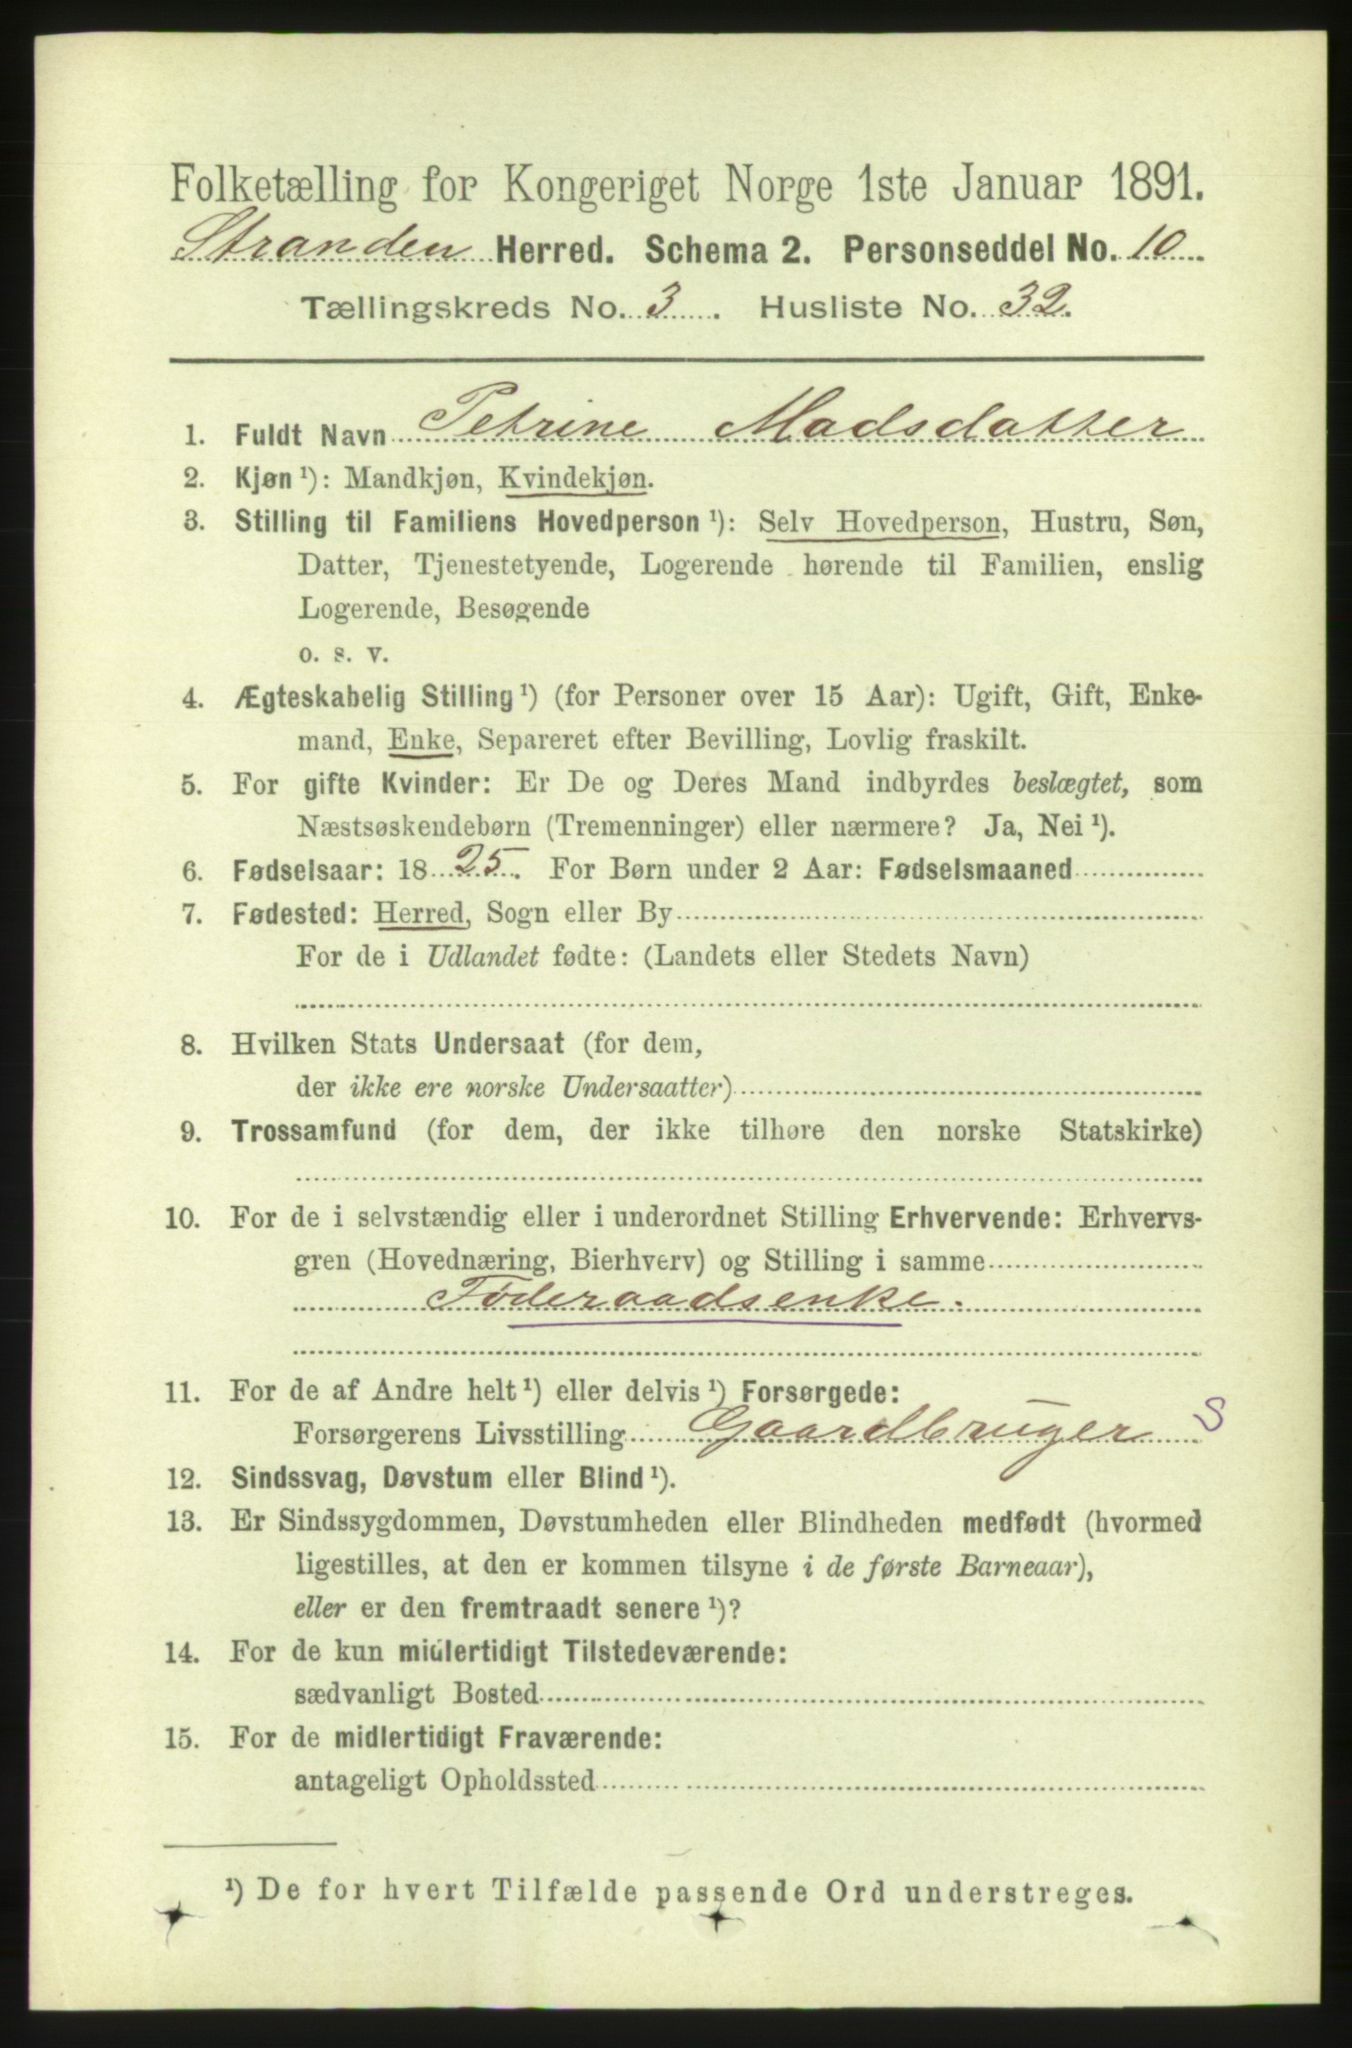 Folketælling for Kongeriget Norge 1ste Januar 1891.
Stranden Herred. Schema 2. Personseddel No. 10
Tællingskreds No. 3. Husliste No. 32.
1. Fuldt Navn Petrine Madsdatter
2. Kjøn ¹): Mandkjøn, Kvindekjøn.
3. Stilling til Familiens Hovedperson ¹): Selv Hovedperson, Hustru, Søn,
Datter, Tjenestetyende, Logerende hørende til Familien, enslig
Logerende, Besøgende
o. s. v.
4. Ægteskabelig Stilling ¹) (for Personer over 15 Aar): Ugift, Gift, Enke-
mand, Enke, Separeret efter Bevilling, Lovlig fraskilt.
5. For gifte Kvinder: Er De og Deres Mand indbyrdes beslægtet, som
Næstsøskendebørn (Tremenninger) eller nærmere? Ja, Nei ¹).
6. Fødselsaar: 1825. For Børn under 2 Aar: Fødselsmaaned
7. Fødested: Herred, Sogn eller By
For de i Udlandet fødte: (Landets eller Stedets Navn)
8. Hvilken Stats Undersaat (for dem,
der ikke ere norske Undersaatter)
9. Trossamfund (for dem, der ikke tilhøre den norske Statskirke)
10. For de i selvstændig eller i underordnet Stilling Erhvervende: Erhvervs-
gren (Hovednæring, Bierhverv) og Stilling i samme
Föderaadsenke.
11. For de af Andre helt ¹) eller delvis ¹) Forsørgede:
Forsørgerens Livsstilling Gaardbruger S
12. Sindssvag, Døvstum eller Blind ¹).
13. Er Sindssygdommen, Døvstumheden eller Blindheden medfødt (hvormed
ligestilles, at den er kommen tilsyne i de første Barneaar),
eller er den fremtraadt senere ¹)?
14. For de kun midlertidigt Tilstedeværende:
sædvanligt Bosted
15. For de midlertidigt Fraværende:
antageligt Opholdssted
¹) De for hvert Tilfælde passende Ord understreges.